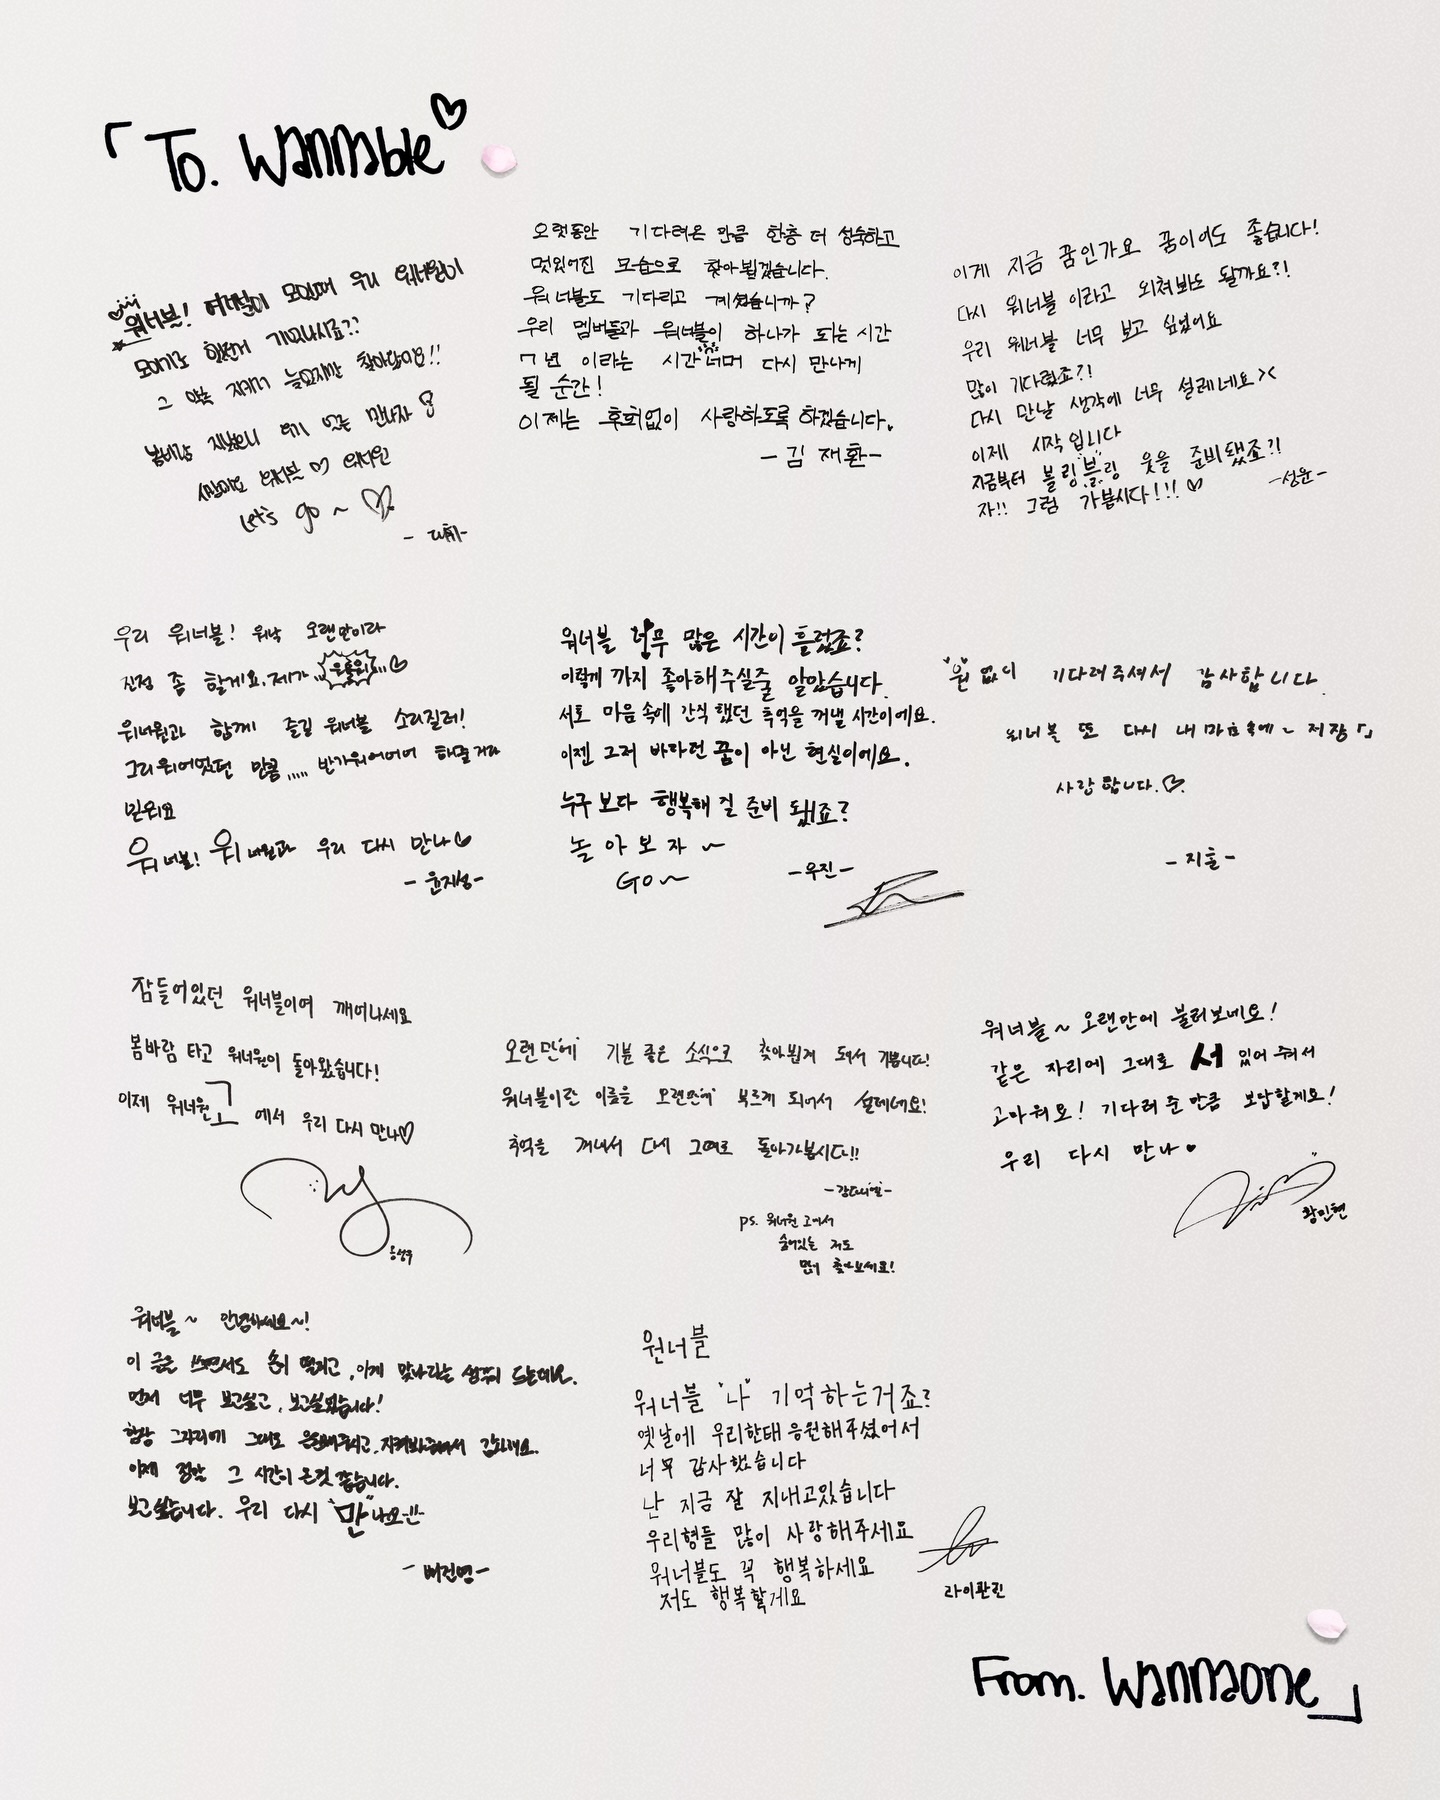 「To. Wannable♡
워너블! 여러분이 모일때 우리 워너원이
모이기로 했던거 기억나시죠??
그 약속 지키러 늦었지만 찾아왔어요!!
봄바람 지났으니 여기 있는 만나자
사랑해요 워너블♡ 워너원
Let's go ~ ♡
- 대휘 -
오랫동안 기다려온 만큼 한층 더 성숙하고
멋있어진 모습으로 찾아뵙겠습니다.
워너블도 기다리고 계셨습니까?
우리 멤버들과 워너블이 하나가 되는 시간
7년 이라는 시간 너머 다시 만나게
될 순간!
이제는 후회없이 사랑하도록 하겠습니다.
- 김재환 -
이게 지금 꿈인가요 꿈이어도 좋습니다!
다시 워너블 이라고 외쳐봐도 될까요?!
우리 워너블 너무 보고 싶었어요
많이 기다렸죠?!
다시 만날 생각에 너무 설레네요><
이제 시작 입니다
지금부터 블링"블"링 웃을 준비됐죠?!
자!! 그럼 가봅시다!!! ♡
- 성운 -
우리 워너블! 워낙 오랜만이라
진정 좀 할게요. 제가 ...♡
워너원과 함께 즐길 워너블 소리질러!
그리워어었던 만큼,,,,, 반가워어어어 해줄거라
믿어요
워너블! 워너원과 우리 다시 만나♡
- 윤지성 -
워너블 너무 많은 시간이 흘렀죠?
이렇게 까지 좋아해주실줄 알았습니다.
서로 마음속에 간직했던 추억을 꺼낼 시간이에요.
이젠 그저 바라던 꿈이 아닌 현실이에요.
누구보다 행복해 질 준비 됐죠?
놀아보자 ~
GO~
- 우진 -
"원" 없이 기다려주셔서 감사합니다.
워너블 또 다시 내 마음속에~ 저장「」
사랑합니다.♡
- 지훈 -
잠들어있던 워너블이여 깨어나세요
봄바람 타고 워너원이 돌아왔습니다!
이제 워너원고 에서 우리 다시 만나♡
옹성우
오랜만에 기분 좋은 소식으로 찾아뵙게 되어서 기쁩니다!
워너블이란 이름을 오랜만에 부르게 되어서 설레네요!
추억을 꺼내서 다시 그때로 돌아가봅시다!!
- 강다니엘 -
ps. 워너원 고에서
숨어있는 저도
많이 찾아보세요!
워너블~ 오랜만에 불러보네요!
같은 자리에 그대로 서 있어 줘서
고마워요! 기다려 준 만큼 보답할게요!
우리 다시 만나♥
황민현
워너블~ 안녕하세요~!
이 글을 쓰면서도 손이 떨리고, 이게 맞나라는 생각이 드는데요.
먼저 너무 보고싶고, 보고싶었습니다!
항상 그자리에 그대로 응원해주시고, 지켜봐주셔서 감사해요.
이제 정말 그 시간이 온것 같습니다.
보고싶습니다. 우리 다시 "만"나요!!
- 배진영 -
워너블
워너블 "나" 기억하는거죠?
옛날에 우리한테 응원해주셨어서
너무 감사했습니다
난 지금 잘 지내고있습니다
우리형들 많이 사랑해주세요
워너블도 꼭 행복하세요
저도 행복할게요
라이관린
From. Wannaone」